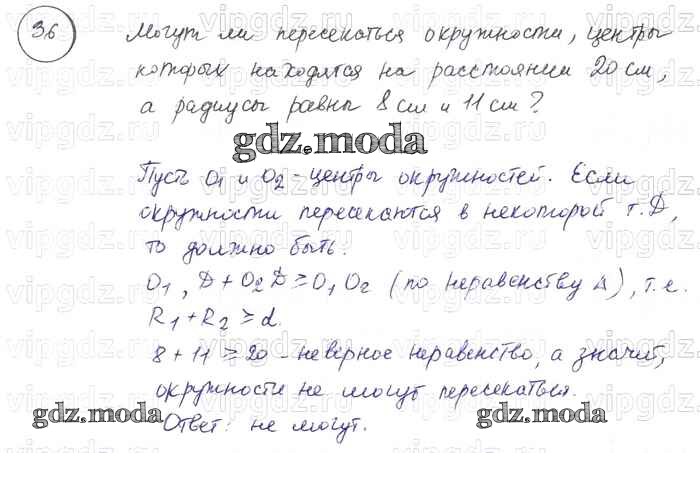 36
Могут ли пересекаться окружности, центры
которых находятся на расстоянии 20 см,
а радиусы равны 8 см и 11 см?
gdz.moda
Пусть O₁ и O₂ - центры окружностей. Если
окружности пересекаются в некоторой т. D,
то должно быть:
O₁, D + O₂D ≥ O₁O₂ (по неравенству Δ), т.е.
R₁ + R₂ ≥ d.
8 + 11 ≥ 20 - неверное неравенство, а значит,
окружности не могут пересекаться.
gdz.moda gdz.moda
Ответ: не могут.
vipgdz.ru